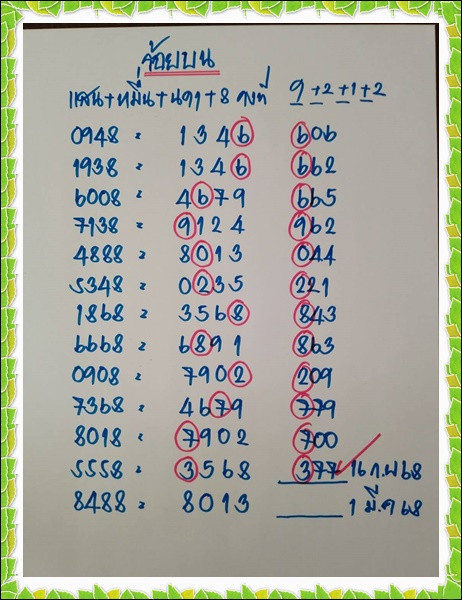 ร้อยบน
แสน+หมื่น+นาๆ+8 คงที่ 9+2+1+2
0948 = 1346 606
1938 = 1346 662
6008 = 4679 665
7138 = 9124 962
4888 = 8013 044
5348 = 0235 221
1868 = 3568 843
6668 = 6891 863
0908 = 7902 209
7368 = 4679 779
8018 = 7902 700
5558 = 3568 377 16 ก.พ 68
8488 = 8013 1 มี.ค 68